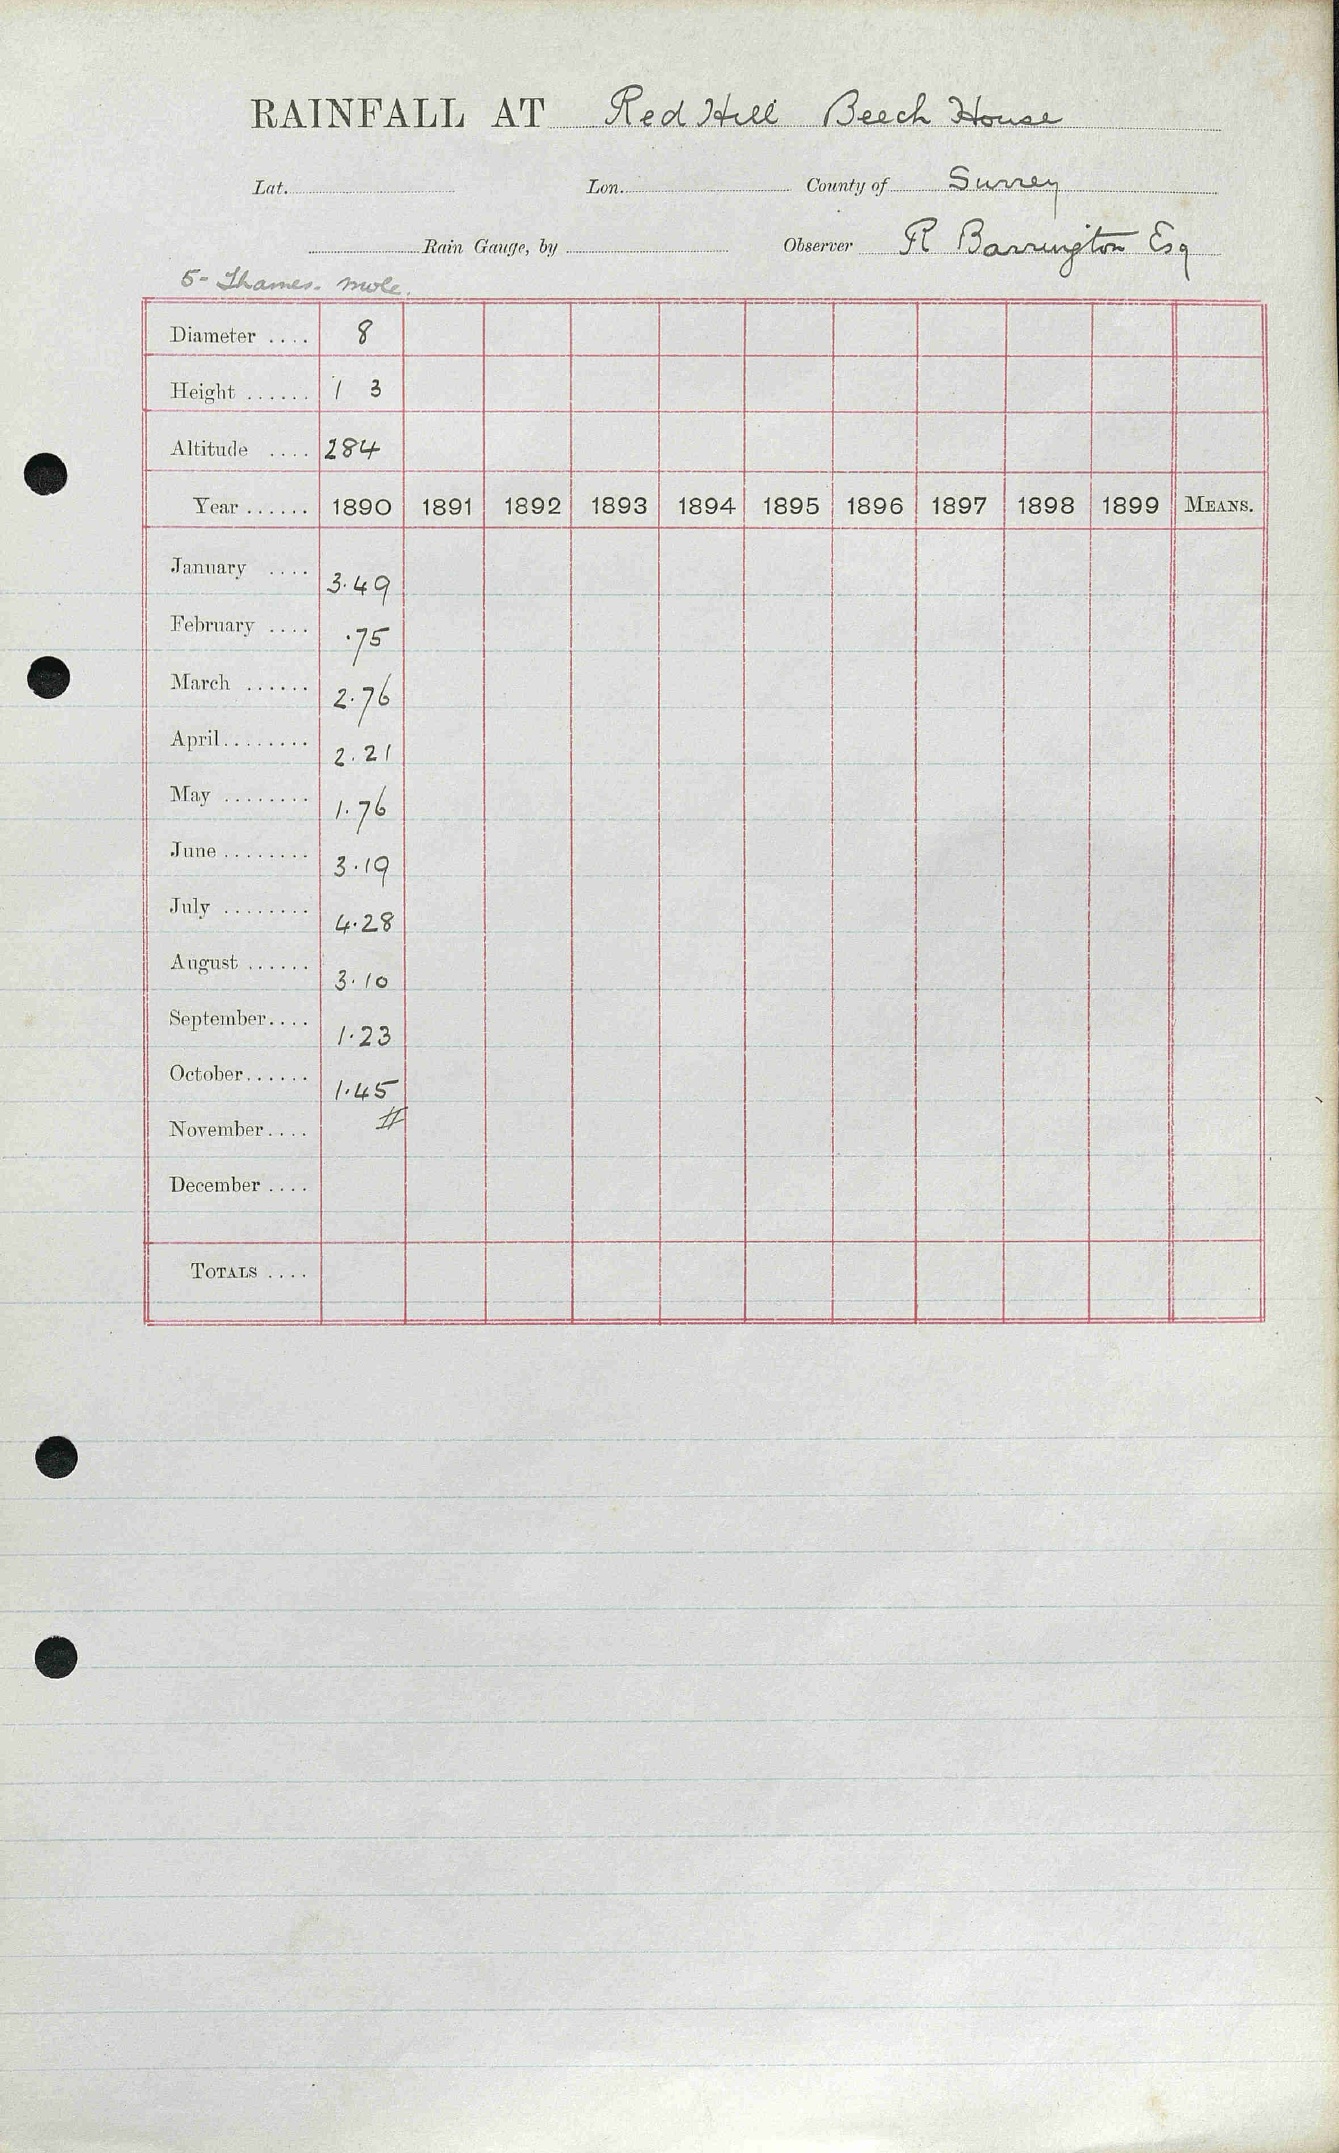 RAINFALL AT Red Hill Beech House
Lat. Lon. County of Surrey
Rain Gauge, by Observer R Barrington Esq
5- Thames. Mole.
Diameter .... 8
Height ...... 1 3
Altitude .... 284
Year ...... 1890 1891 1892 1893 1894 1895 1896 1897 1898 1899 MEANS.
January .... 3.49
February .... .75
March ...... 2.76
April........ 2.21
May ........ 1.76
June ........ 3.19
July ........ 4.28
August ...... 3.10
September.... 1.23
October...... 1.45
November.... #
December ....
TOTALS ....